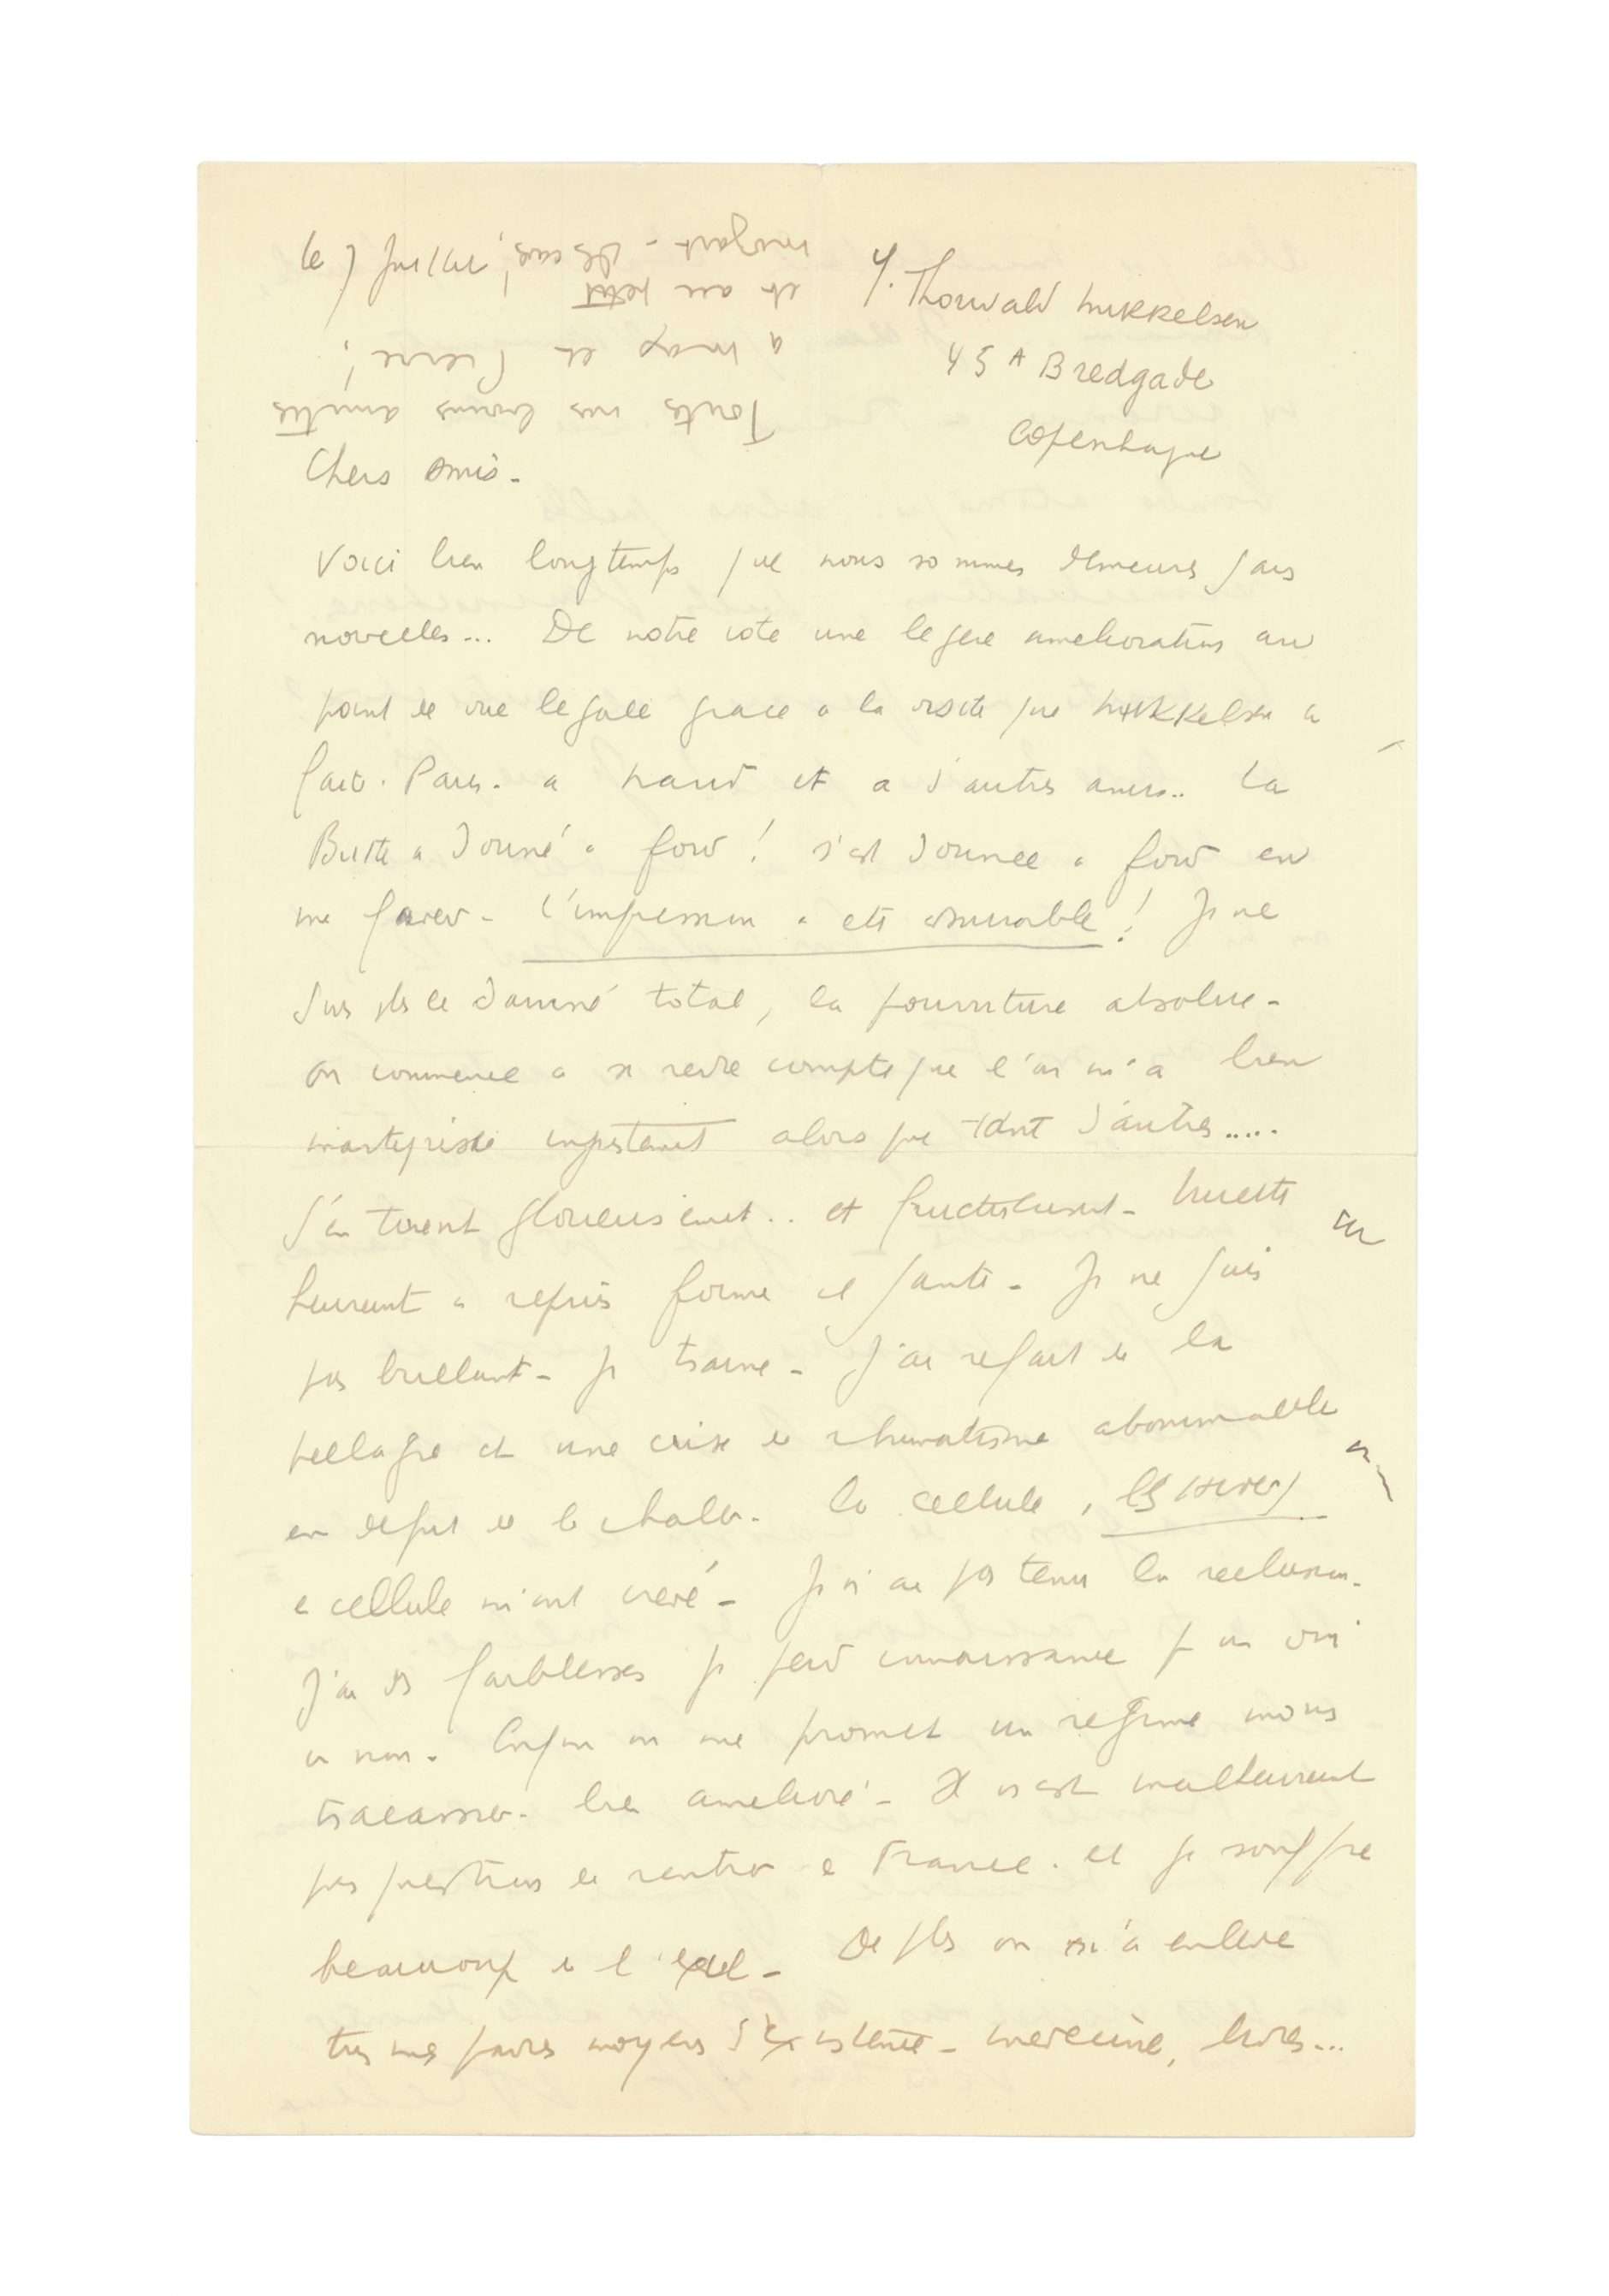 le 7 Juillet
Y. Thorwald Mikkelsen
45 A Bredgade
Copenhague
Toutes nos bonnes amitiés
à Max et Pierre !
et au petit
Mozart -
Chers amis -
Voici bien longtemps que nous sommes demeurés sans
nouvelles... De notre cote une legere amelioration au
point de vue legale grace a la visite que Mikkelsen a
fait. Paris. a Naud et a d'autres amis.. La
a donné a fond ! s'est donnee a fond en
ma faveur - L'impression a ete ! Je ne
suis plus le damné total, la pourriture absolue -
on commence a se rendre compte que l'on m'a bien
martyrisé injustement alors que tant d'autres.....
s'en tirent glorieusement .. et fructueusement - Lucette
heureusement a repris forme et santé - Je ne suis
pas brillant - Je traine - J'ai refait de la
pellagre et une crise de rhumatisme abominable
en depit de la chaleur. La cellule, les hivers
en cellule m'ont crevé - Je n'ai pas tenu la reclusion -
J'ai des faiblesses je perd connaissance pour un oui
un non. Enfin on me promet un regime moins
tracassier. bien amelioré - Il n'est malheureusement
pas question de rentrer en France. et je souffre
beaucoup de l'exil - De plus on m'a enlevé
tous mes pauvres moyens d'existence - medecine, livres...